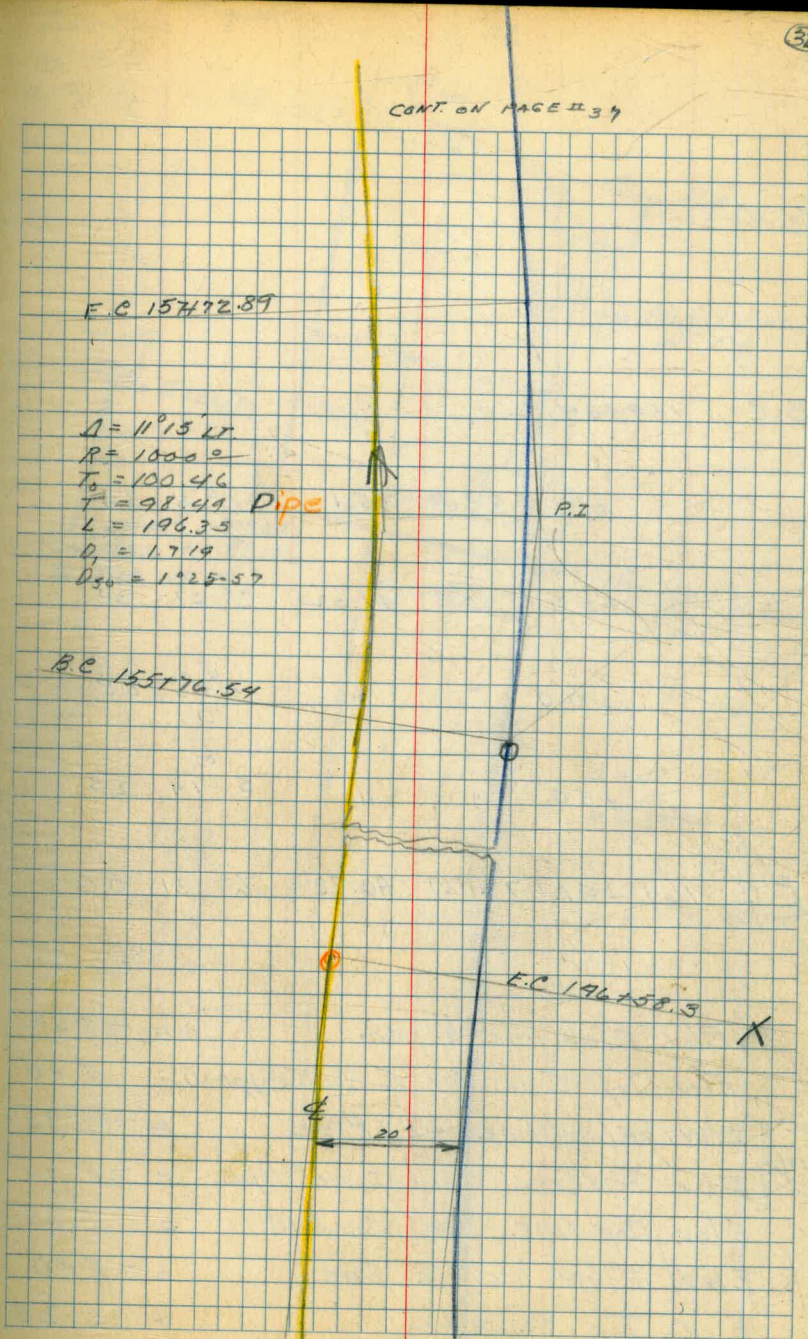 CONT. ON PAGE # 37
E.C 157+72.89
Δ = 11°15' LT.
R = 1000 0
T₀ = 100.46
T = 98.49 Pipe
L = 196.35
D₁ = 1.719
D₅₀ = 1°25-57
P.I
B.C 155+76.54
E.C 146+58.3 X
℄
20'